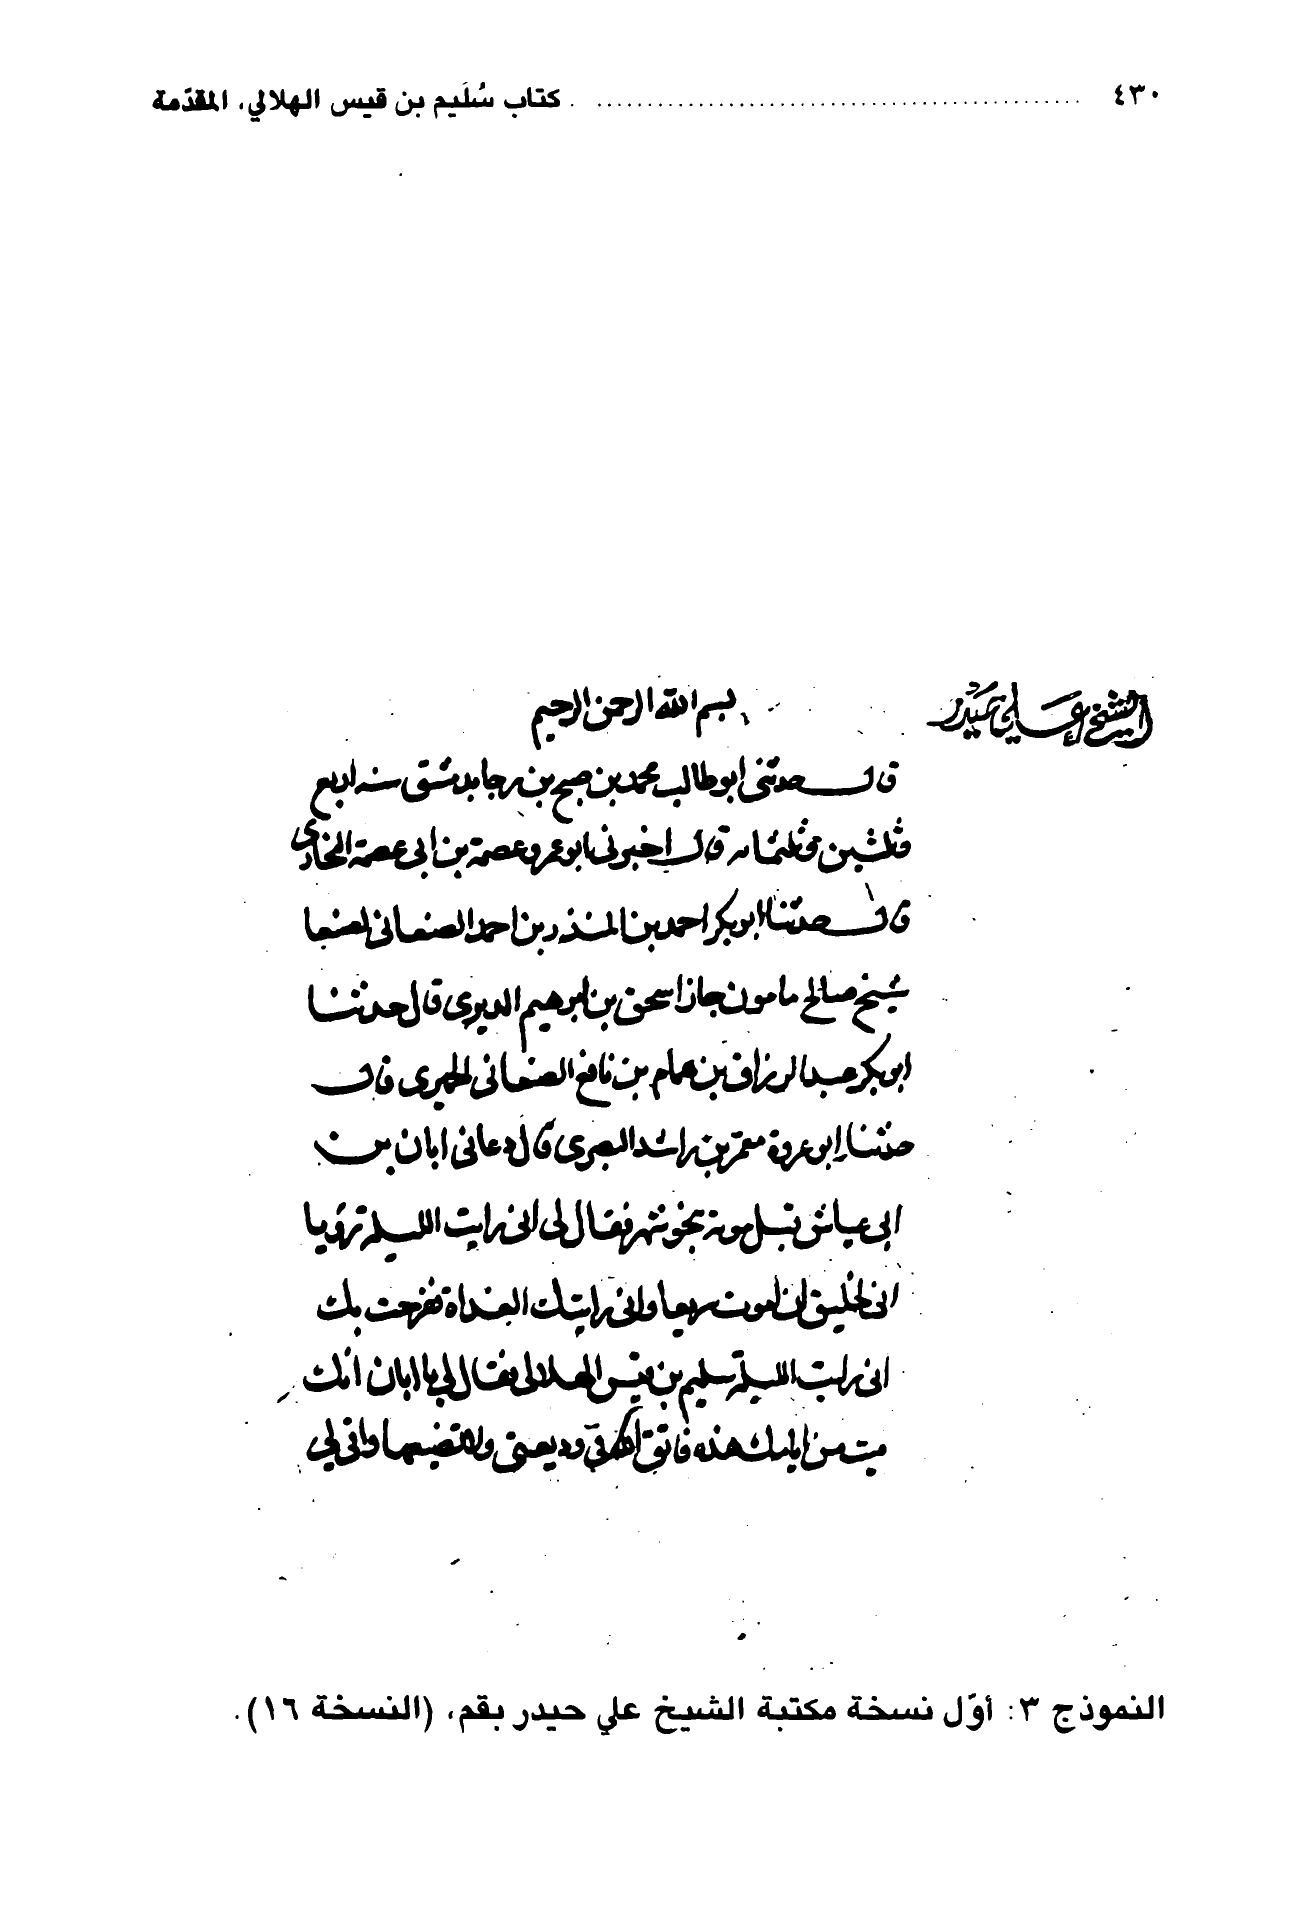 ٤٣٠ ........ كتاب سُلَيم بن قيس الهلالي، المقدّمة
الشيخ علي حيدر
بسم الله الرحمن الرحيم
قال حدثنى ابو طالب محمد بن صبيح بن رجا بدمشق سنه اربع
وثلثين وثلثمائه قال اخبرنى ابو عمرو عصمة بن ابى عصمة البخارى
قال حدثنا ابو بكر احمد بن المنذر بن احمد الصنعانى بصنعا
شيخ صالح مامون جار اسحق بن ابرهيم الدبرى قال حدثنا
ابو بكر عبد الرزاق بن همام بن نافع الصنعانى الحميرى قال
حدثنا ابو عروة معمر بن راشد البصرى قال دعانى ابان بن
ابى عياش قبل موته بنحو شهر فقال لى انى رايت الليلة رويا
انى لخليق ان اموت سريعا وانى رايتك الغداة ففرحت بك
انى رايت الليلة سليم بن قيس الهلالى فقال لى يا ابان انك
ميت من ايامك هذه فاتق الله فى وديعتى ولا تضيعها وفى لى
النموذج ٣: أوّل نسخة مكتبة الشيخ علي حيدر بقم، (النسخة ١٦).